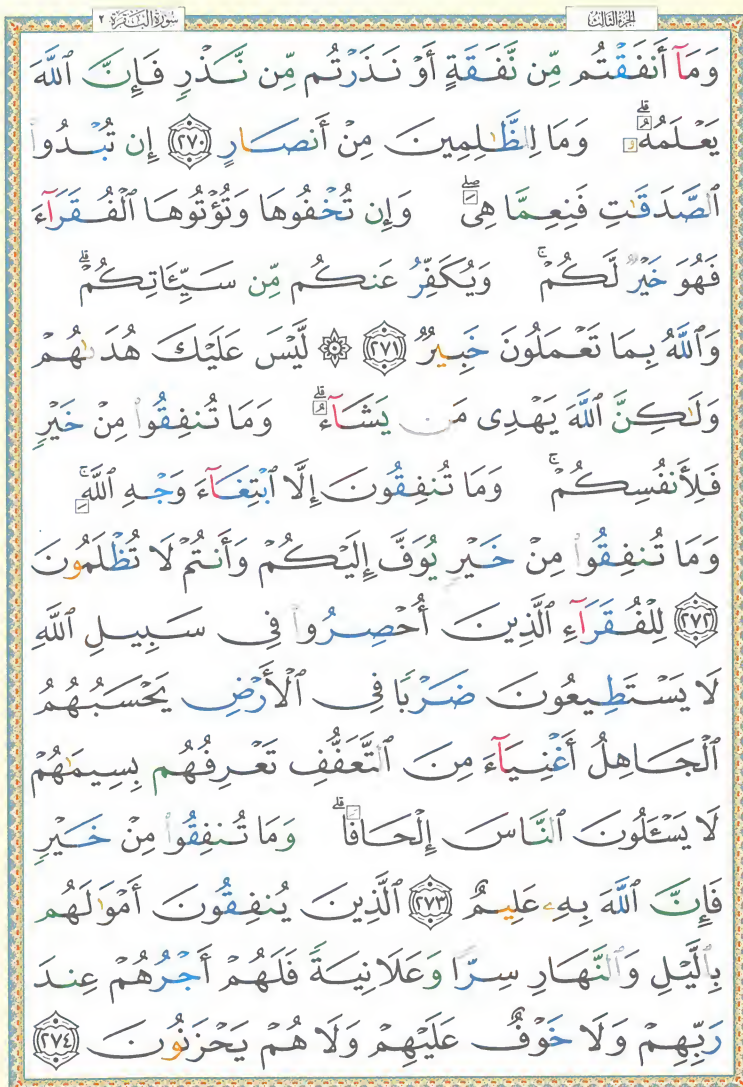 سُورَةُ البَقَرَةِ ٢
الجزء الثالث
وَمَآ أَنفَقْتُم مِّن نَّفَقَةٍ أَوْ نَذَرْتُم مِّن نَّذْرٍ فَإِنَّ ٱللَّهَ
يَعْلَمُهُۥۗ وَمَا لِلظَّٰلِمِينَ مِنْ أَنصَارٍ ٢٧٠ إِن تُبْدُوا۟
ٱلصَّدَقَٰتِ فَنِعِمَّا هِىَۖ وَإِن تُخْفُوهَا وَتُؤْتُوهَا ٱلْفُقَرَآءَ
فَهُوَ خَيْرٌ لَّكُمْۚ وَيُكَفِّرُ عَنكُم مِّن سَيِّـَٔاتِكُمْۗ
وَٱللَّهُ بِمَا تَعْمَلُونَ خَبِيرٌ ٢٧١ ۞ لَّيْسَ عَلَيْكَ هُدَىٰهُمْ
وَلَٰكِنَّ ٱللَّهَ يَهْدِى مَن يَشَآءُۗ وَمَا تُنفِقُوا۟ مِنْ خَيْرٍ
فَلِأَنفُسِكُمْۚ وَمَا تُنفِقُونَ إِلَّا ٱبْتِغَآءَ وَجْهِ ٱللَّهِۚ
وَمَا تُنفِقُوا۟ مِنْ خَيْرٍ يُوَفَّ إِلَيْكُمْ وَأَنتُمْ لَا تُظْلَمُونَ
٢٧٢ لِلْفُقَرَآءِ ٱلَّذِينَ أُحْصِرُوا۟ فِى سَبِيلِ ٱللَّهِ
لَا يَسْتَطِيعُونَ ضَرْبًا فِى ٱلْأَرْضِ يَحْسَبُهُمُ
ٱلْجَاهِلُ أَغْنِيَآءَ مِنَ ٱلتَّعَفُّفِ تَعْرِفُهُم بِسِيمَٰهُمْ
لَا يَسْـَٔلُونَ ٱلنَّاسَ إِلْحَافًاۗ وَمَا تُنفِقُوا۟ مِنْ خَيْرٍ
فَإِنَّ ٱللَّهَ بِهِۦ عَلِيمٌ ٢٧٣ ٱلَّذِينَ يُنفِقُونَ أَمْوَٰلَهُم
بِٱلَّيْلِ وَٱلنَّهَارِ سِرًّا وَعَلَانِيَةً فَلَهُمْ أَجْرُهُمْ عِندَ
رَبِّهِمْ وَلَا خَوْفٌ عَلَيْهِمْ وَلَا هُمْ يَحْزَنُونَ ٢٧٤